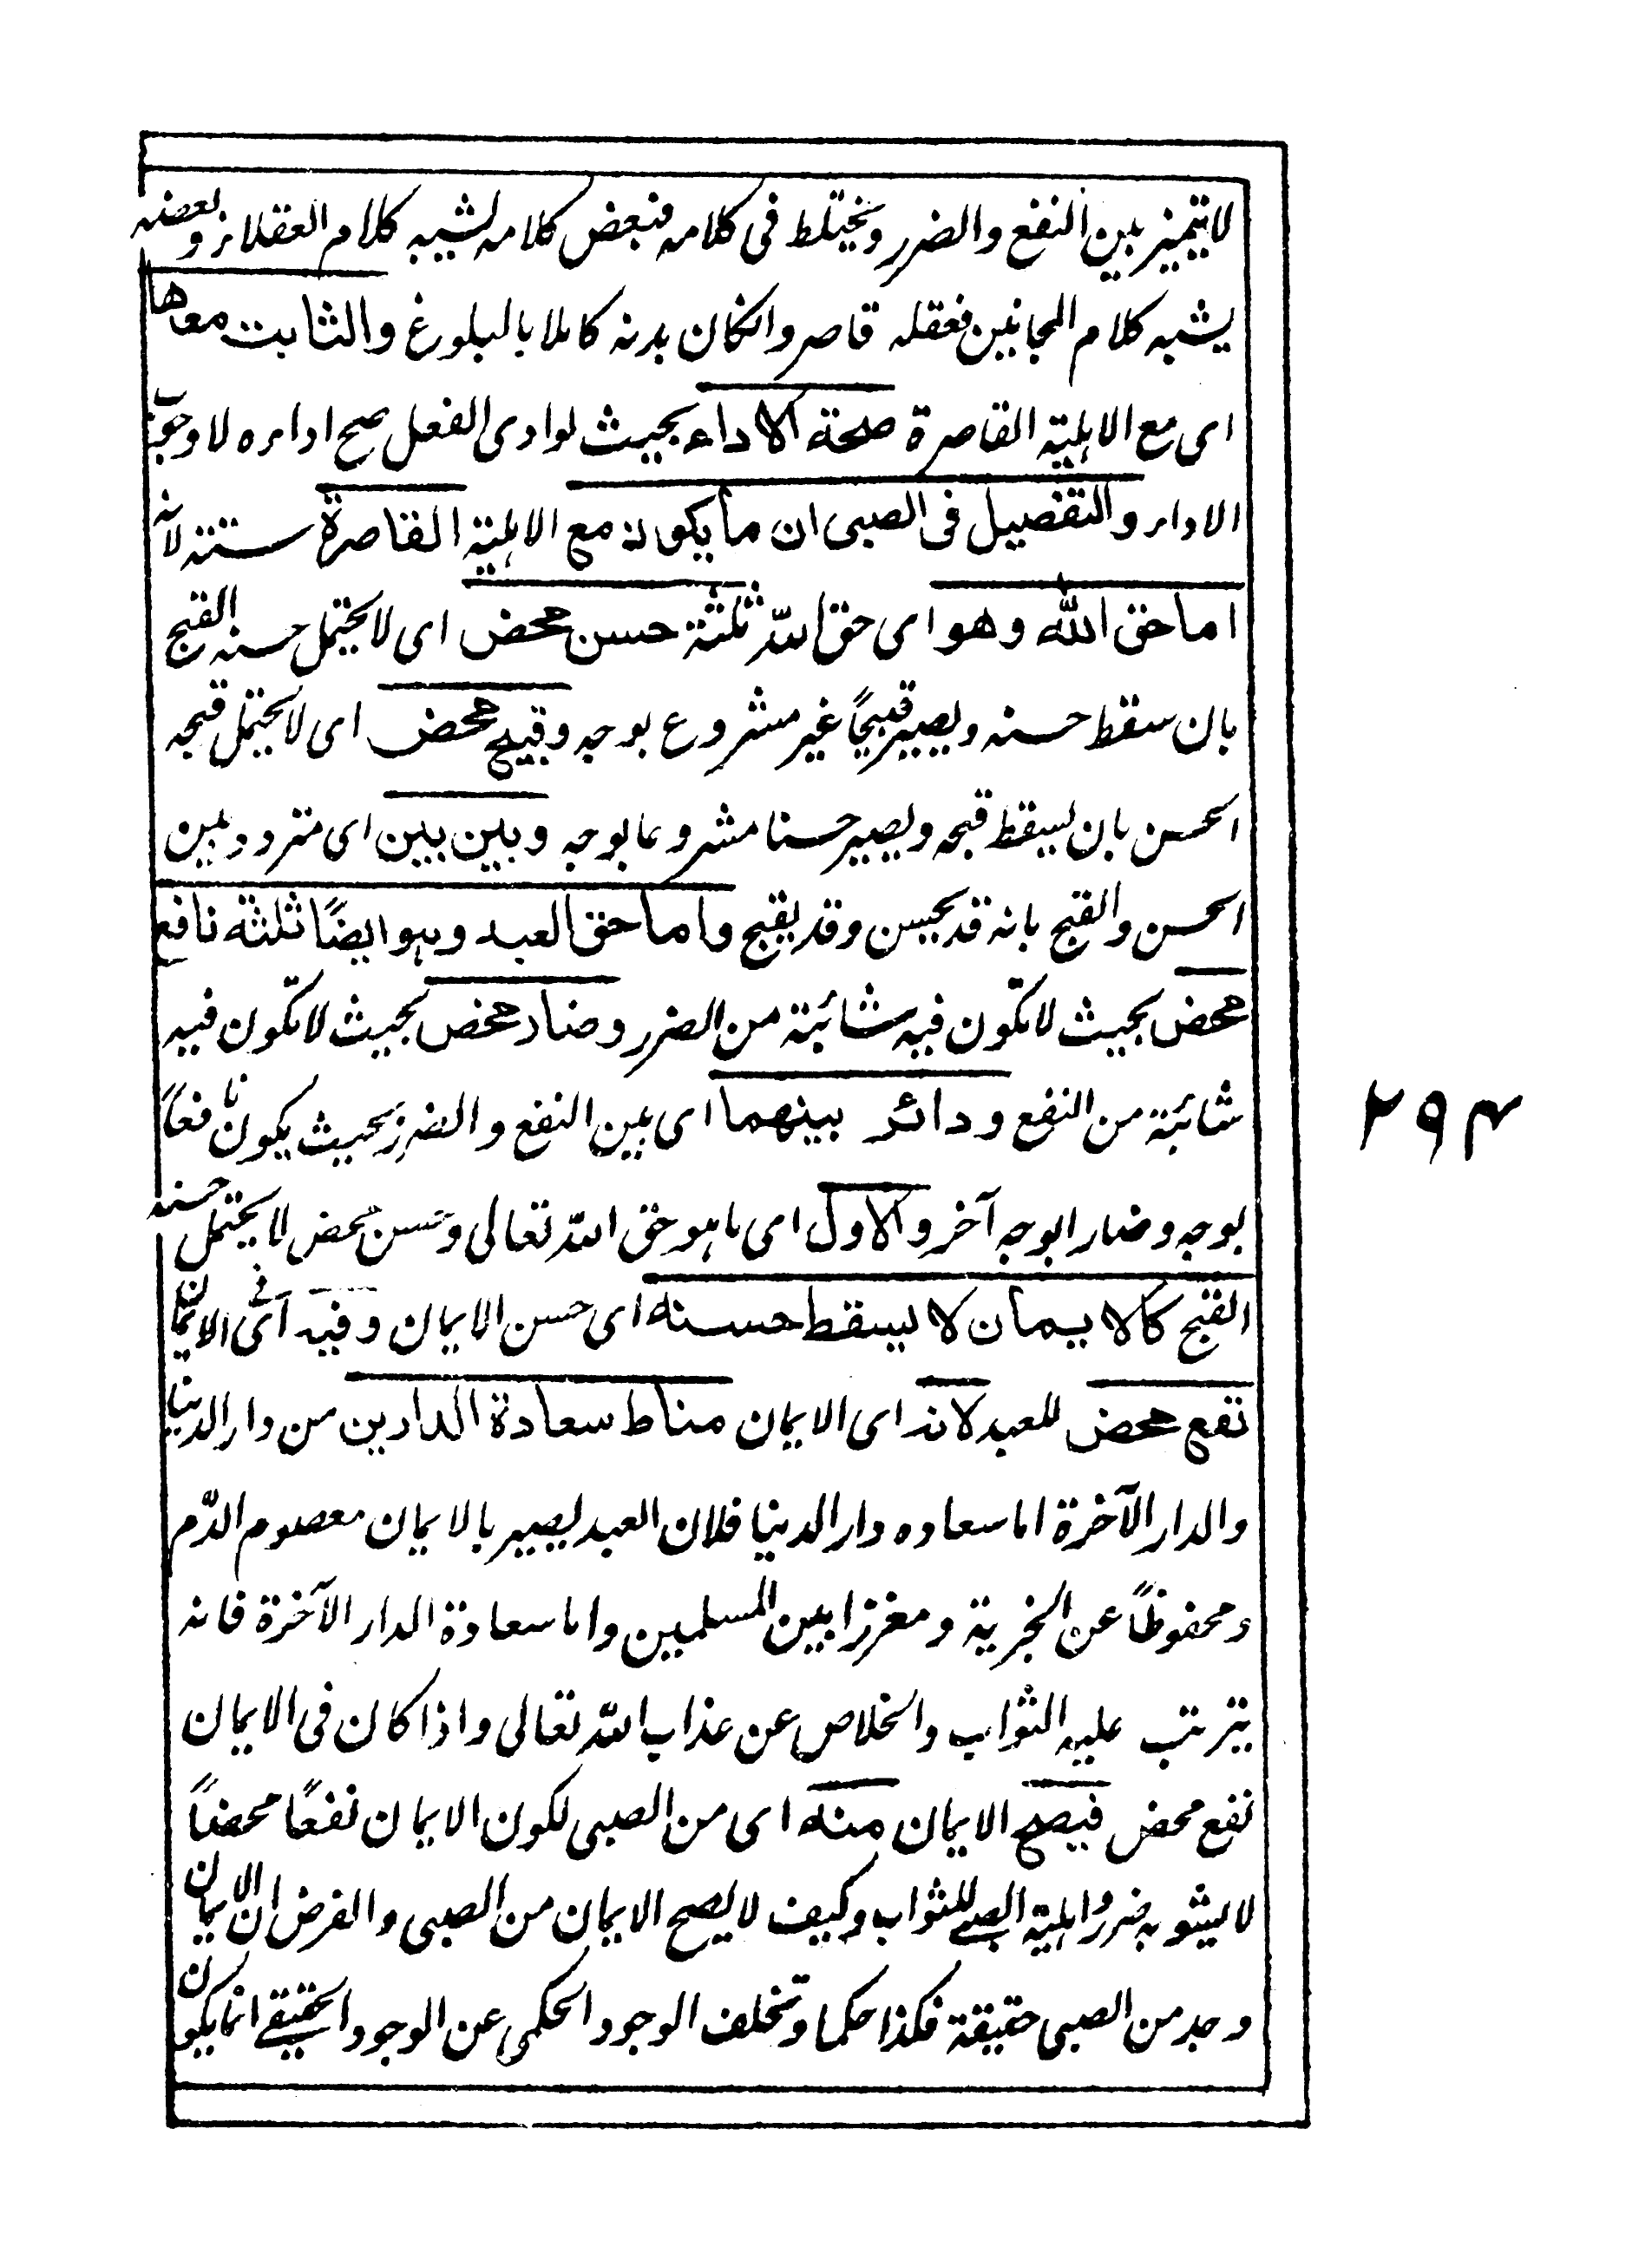 لا يتميز بين النفع والضرر ويختلط فى كلامه فبعض كلامه يشبه كلام العقلاء وبعضه
يشبه كلام المجانين فعقله قاصر وانكان بدنه كاملا بالبلوغ والثابت معها
اى مع الاهلية القاصرة صحة الاداء بحيث لوادى الفعل صح اداءه لا وجوب
الاداء والتفصيل فى الصبى ان ما يكون مع الاهلية القاصرة ستته لانه
اما حق الله وهو اى حق الله ثلثة حسن محض اى لا يحتمل حسنه القبح
بان سقط حسنه ويصير قبيحًا غير مشروع بوجه وقبيح محض اى لا يحتمل قبحه
الحسن بان يسقط قبحه ويصير حسنا مشروعا بوجه وبين بين اى متردد بين
الحسن والقبح بانه قد يحسن وقد يقبح واما حق العبد وهو ايضًا ثلثة نافع
محض بحيث لا تكون فيه شائبة من الضرر وضار محض بحيث لا تكون فيه
شائبة من النفع ودائر بينهما اى بين النفع والضرر بحيث يكون نافعًا
بوجه وضارا بوجه آخر والاول اى ما هو حق الله تعالى وحسن محض لا يحتمل حسنه
القبح كالايمان لا يسقط حسنه اى حسن الايمان وفيه اى فى الايمان
نفع محض للعبد لانه اى الايمان مناط سعادة الدارين من دار الدنيا
والدار الآخرة اما سعاده دار الدنيا فلان العبد يصير بالايمان معصوم الدّم
ومحفوظًا عن الجزية ومعززا بين المسلمين واما سعادة الدار الآخرة فانه
يترتب عليه الثواب والخلاص عن عذاب الله تعالى واذا كان فى الايمان
نفع محض فيصح الايمان منه اى من الصبى لكون الايمان نفعًا محضًا
لا يشوبه ضرر واهلية الصبى للثواب وكيف لا يصح الايمان من الصبى والفرض ان الايمان
وجد من الصبى حقيقة فكذا حكما وتخلف الوجود الحكمى عن الوجود الحقيقى انما يكون
۲۹۴